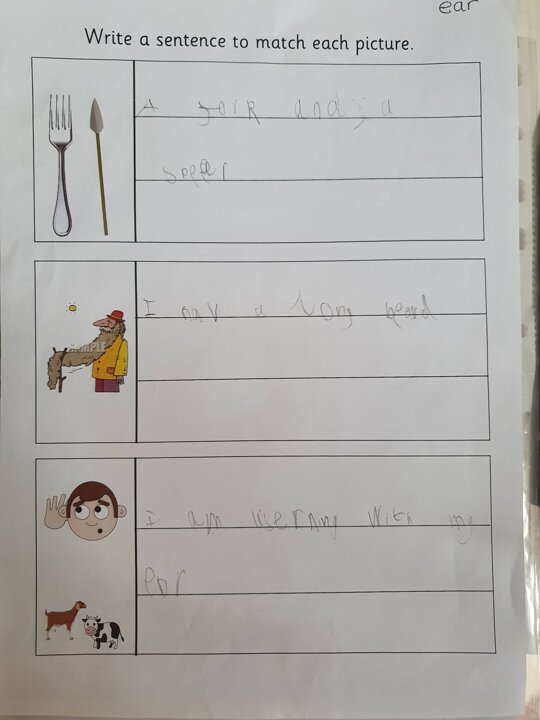 ear
Write a sentence to match each picture.
A fork and a
I hav a long beard
I am with my
ear